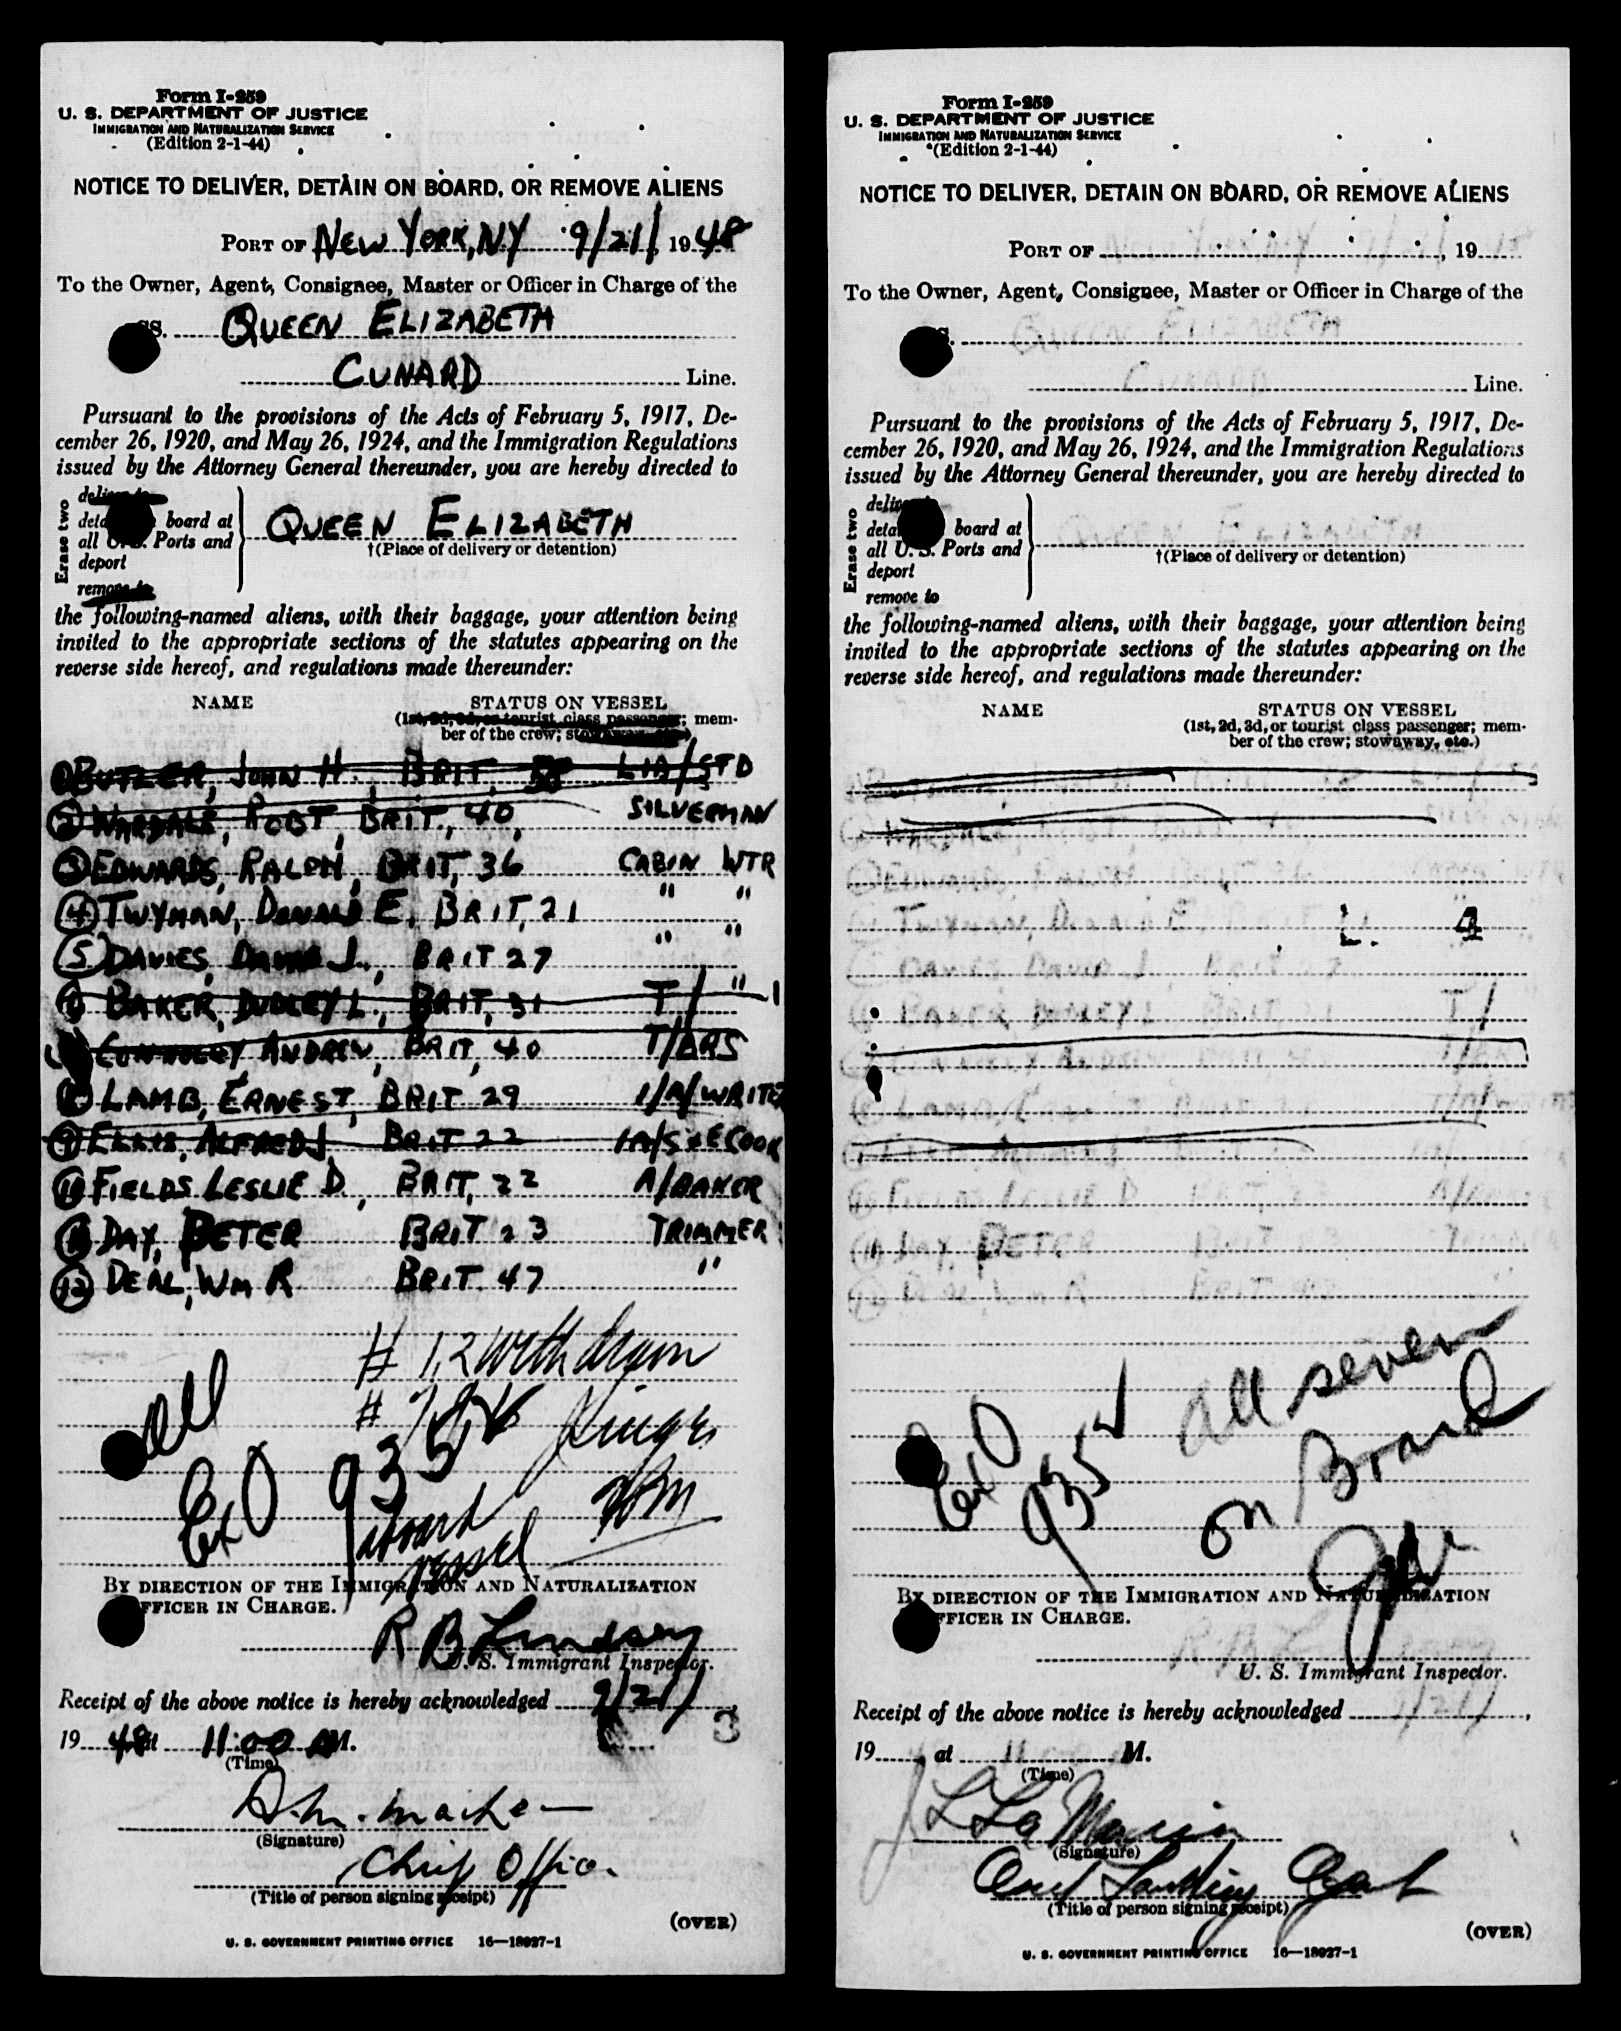 Form I-259
U. S. DEPARTMENT OF JUSTICE
IMMIGRATION AND NATURALIZATION SERVICE
(Edition 2-1-44)
NOTICE TO DELIVER, DETAIN ON BOARD, OR REMOVE ALIENS
PORT OF NEW YORK, NY 9/21, 1948
To the Owner, Agent, Consignee, Master or Officer in Charge of the
SS. QUEEN ELIZABETH
CUNARD Line.
Pursuant to the provisions of the Acts of February 5, 1917, De-
cember 26, 1920, and May 26, 1924, and the Immigration Regulations
issued by the Attorney General thereunder, you are hereby directed to
Erase two
deliver to
board at
all U. S. Ports and
deport
remove to
QUEEN ELIZABETH
†(Place of delivery or detention)
the following-named aliens, with their baggage, your attention being
invited to the appropriate sections of the statutes appearing on the
reverse side hereof, and regulations made thereunder:
NAME STATUS ON VESSEL
(1st, 2d, 3d, or tourist class passenger; mem-
ber of the crew; stowaway, etc.)
1 BUTLER, JOHN H. BRIT, LIA/STD
2 WARDALE, ROBT, BRIT., 40, SILVERMAN
3 EDWARDS, RALPH, BRIT, 36 CABIN WTR
4 TWYMAN, DONALD E, BRIT, 21 " "
5 DAVIES, DAVID J., BRIT 27 " "
6 BAKER, DUDLEY L., BRIT, 31 T/ "
ANDREW, BRIT, 40
LAMB, ERNEST, BRIT 29 1/A/WRITER
9 ELLIS, ALFRED J BRIT 22
FIELDS LESLIE D., BRIT, 22 A/BAKER
DAY, PETER BRIT 23 TRIMMER
12 DEAL, WM R BRIT. 47 "
# 1,2 withdrawn
all
ExO 935
aboard
vessel
BY DIRECTION OF THE IMMIGRATION AND NATURALIZATION
OFFICER IN CHARGE.
R B Lindsay
U. S. Immigrant Inspector.
Receipt of the above notice is hereby acknowledged 9/21,
1948 at 11:00 AM.
(Time)
(Signature)
Chief Officer
(Title of person signing receipt)
(OVER)
U. S. GOVERNMENT PRINTING OFFICE 16—18927-1
Form I-259
U. S. DEPARTMENT OF JUSTICE
IMMIGRATION AND NATURALIZATION SERVICE
(Edition 2-1-44)
NOTICE TO DELIVER, DETAIN ON BOARD, OR REMOVE ALIENS
PORT OF NEW YORK, NY, 19
To the Owner, Agent, Consignee, Master or Officer in Charge of the
QUEEN ELIZABETH
CUNARD Line.
Pursuant to the provisions of the Acts of February 5, 1917, De-
cember 26, 1920, and May 26, 1924, and the Immigration Regulations
issued by the Attorney General thereunder, you are hereby directed to
Erase two
board at
all U. S. Ports and
deport
remove to
QUEEN ELIZABETH
†(Place of delivery or detention)
the following-named aliens, with their baggage, your attention being
invited to the appropriate sections of the statutes appearing on the
reverse side hereof, and regulations made thereunder:
NAME STATUS ON VESSEL
(1st, 2d, 3d, or tourist class passenger; mem-
ber of the crew; stowaway, etc.)
TWYMAN, DONALD E, L. 4
DAVIES DAVID J BRIT 27
BAKER DUDLEY L BRIT T/
FIELDS LESLIE D BRIT
11 DAY, PETER BRIT
BRIT
ExO 935 all seven
on Board
BY DIRECTION OF THE IMMIGRATION AND NATURALIZATION
OFFICER IN CHARGE.
U. S. Immigrant Inspector.
Receipt of the above notice is hereby acknowledged /21,
19 at 11 M.
(Time)
(Signature)
Landing Agent
(Title of person signing receipt)
(OVER)
U. S. GOVERNMENT PRINTING OFFICE 16—18927-1